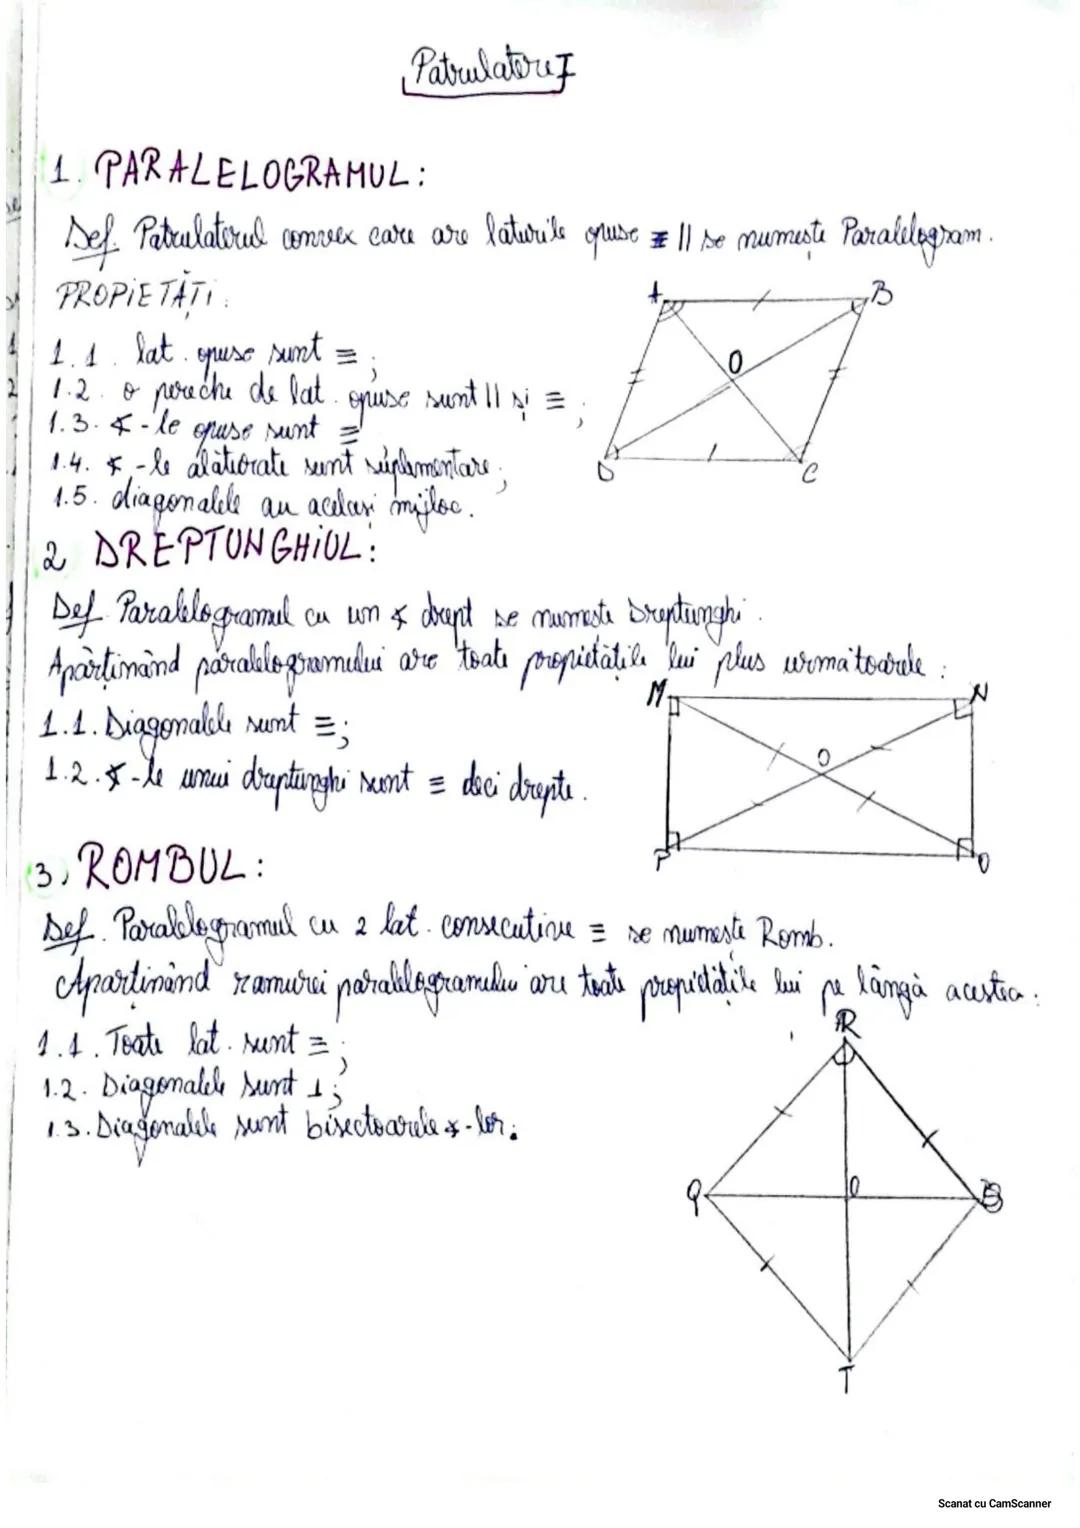 Patrulatere I
1. PARALELOGRAMUL:
Def. Patrulaterul convex care are laturile opuse || se numește Paralelogram.
PROPIETĂȚI:
A
B
1.1. lat. opuse sunt ≡;
O
1.2. o pereche de lat. opuse sunt || și ≡;
1.3. ∢-le opuse sunt ≡
1.4. ∢-le alăturate sunt suplimentare;
D
C
1.5. diagonalele au același mijloc.
2 DREPTUNGHIUL:
Def. Paralelogramul cu un ∢ drept se numește Dreptunghi.
Aparținând paralelogramului are toate propietățile lui plus următoarele:
M
N
1.1. Diagonalele sunt ≡;
O
1.2. ∢-le unui dreptunghi sunt ≡ deci drepte.
P
O
3. ROMBUL:
Def. Paralelogramul cu 2 lat. consecutive ≡ se numește Romb.
Aparținând ramurei paralelogramului are toate propietățile lui pe lângă acestea:
R
1.1. Toate lat. sunt ≡;
1.2. Diagonalele sunt ⊥;
1.3. Diagonalele sunt bisectoarele ∢-lor.
Q
O
T
Scanat cu CamScanner